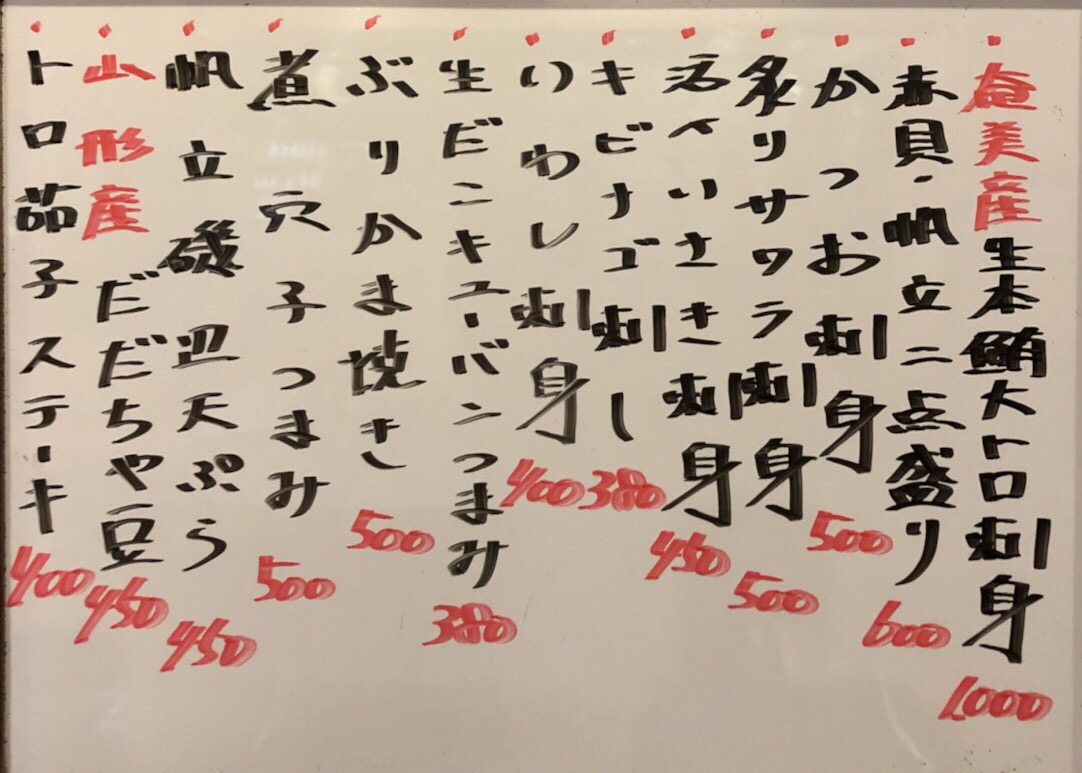 奄美産生本鮪大トロ刺身 1,000
赤貝・帆立二点盛り 600
かつお刺身 500
炙りサワラ刺身 500
活〆いさき刺身 450
キビナゴ刺し 380
いわし刺身 400
生ダニキューバンつまみ 380
ぶりかま焼き 500
煮穴子つまみ 500
帆立磯辺天ぷら 450
山形産だだちゃ豆 450
トロ茄子ステーキ 400